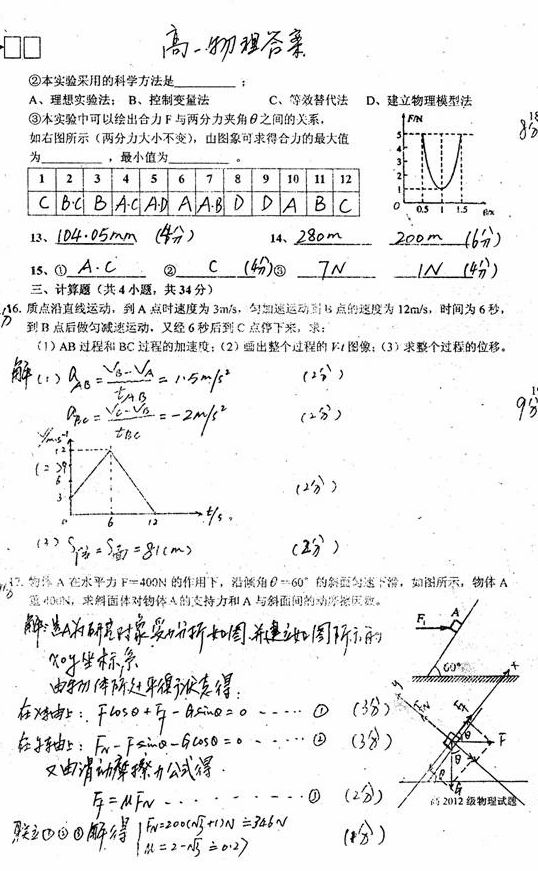 高一物理答案
②本实验采用的科学方法是________；
A、理想实验法； B、控制变量法 C、等效替代法 D、建立物理模型法
③本实验中可以绘出合力 F 与两分力夹角θ之间的关系，
如右图所示（两分力大小不变），由图象可求得合力的最大值
为________，最小值为________。
F/N
5
4
3
2
1
0 0.5 1 1.5
1 2 3 4 5 6 7 8 9 10 11 12
C B·C B A·C A·D A A·B D D A B C
13、104.05mm (4分) 14、280m 200m (6分)
15、① A·C ② C (4分) ③ 7N 1N (4分)
三、计算题（共 4 小题，共 34 分）
16. 质点沿直线运动，到 A 点时速度为 3m/s，匀加速运动到 B 点的速度为 12m/s，时间为 6 秒，
到 B 点后做匀减速运动，又经 6 秒后到 C 点停下来，求：
（1）AB 过程和 BC 过程的加速度；（2）画出整个过程的 V-t 图像；（3）求整个过程的位移。
解(1) a_AB = (V_B - V_A)/t_AB = 1.5m/s² (2分)
a_BC = (V_C - V_B)/t_BC = -2m/s² (2分)
V/m·s⁻¹
12
(2) 9
6
3
0 6 12 t/s
(2分)
(3) S位 = S面 = 81(m) (2分)
17. 物体 A 在水平力 F=400N 的作用下，沿倾角θ=60°的斜面匀速下滑，如图所示，物体 A
重 400N，求斜面体对物体 A 的支持力和 A 与斜面间的动摩擦因数。
F A
60°
解：选A为研究对象受力分析如图，并建立如图所示的
xoy坐标系
由物体所处平衡状态得：
在x轴上：Fcosθ + Ff - Gsinθ = 0 ----- ① (3分)
在y轴上：FN - Fsinθ - Gcosθ = 0 ----- ② (3分)
又由滑动摩擦力公式得
Ff = μFN --------- ③ (2分)
联立①②③解得 FN=200(√3+1)N ≐ 546N
μ = 2-√3 ≐ 0.27
x
y
FN
Ff
F
θ
θ
G
2012 级物理试题